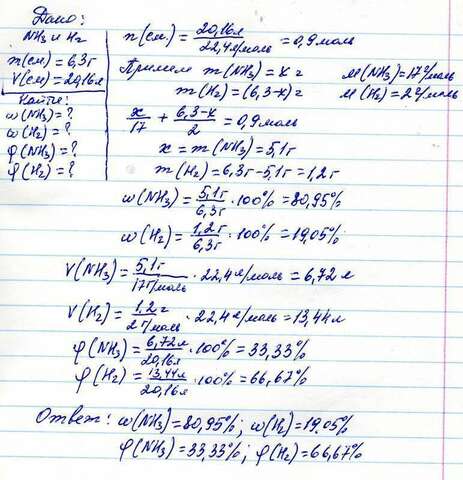 Дано:
NH₃ и H₂
m(см)=6,3г
V(см)=20,16л
Найти:
ω(NH₃)=?
ω(H₂)=?
φ(NH₃)=?
φ(H₂)=?
n(см)=20,16л/22,4л/моль=0,9моль
Примем m(NH₃)=x г M(NH₃)=17г/моль
m(H₂)=(6,3-x)г M(H₂)=2г/моль
x/17+6,3-x/2=0,9моль
x=m(NH₃)=5,1г
m(H₂)=6,3г-5,1г=1,2г
ω(NH₃)=5,1г/6,3г·100%=80,95%
ω(H₂)=1,2г/6,3г·100%=19,05%
V(NH₃)=5,1г/17г/моль·22,4л/моль=6,72л
V(H₂)=1,2г/2г/моль·22,4л/моль=13,44л
φ(NH₃)=6,72л/20,16л·100%=33,33%
φ(H₂)=13,44л/20,16л·100%=66,67%
Ответ: ω(NH₃)=80,95%; ω(H₂)=19,05%
φ(NH₃)=33,33%; φ(H₂)=66,67%